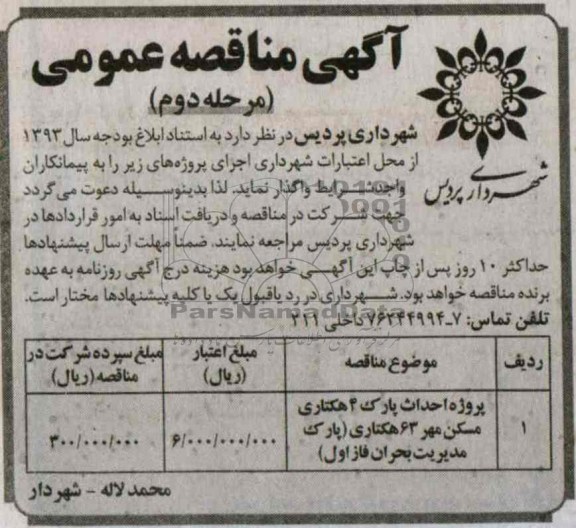 آگهی مناقصه عمومی
(مرحله دوم)
شهرداری پردیس
شهرداری پردیس در نظر دارد به استناد ابلاغ بودجه سال ۱۳۹۳
از محل اعتبارات شهرداری اجرای پروژه‌های زیر را به پیمانکاران
واجد شرایط واگذار نماید. لذا بدینوسیله دعوت می‌گردد
جهت شرکت در مناقصه و دریافت اسناد به امور قراردادها در
شهرداری پردیس مراجعه نمایند. ضمناً مهلت ارسال پیشنهادها
حداکثر ۱۰ روز پس از چاپ این آگهی خواهد بود هزینه درج آگهی روزنامه به عهده
برنده مناقصه خواهد بود. شهرداری در رد یا قبول یک یا کلیه پیشنهادها مختار است.
ParsNamadData
تلفن تماس: ۷-۷۶۲۴۴۹۹۴ داخلی ۲۲۱
ردیف موضوع مناقصه مبلغ اعتبار (ریال) مبلغ سپرده شرکت در مناقصه (ریال)
۱ پروژه احداث پارک ۴ هکتاری
مسکن مهر ۶۳ هکتاری (پارک
مدیریت بحران فاز اول) ۶/۰۰۰/۰۰۰/۰۰۰ ۳۰۰/۰۰۰/۰۰۰
محمد لاله - شهردار